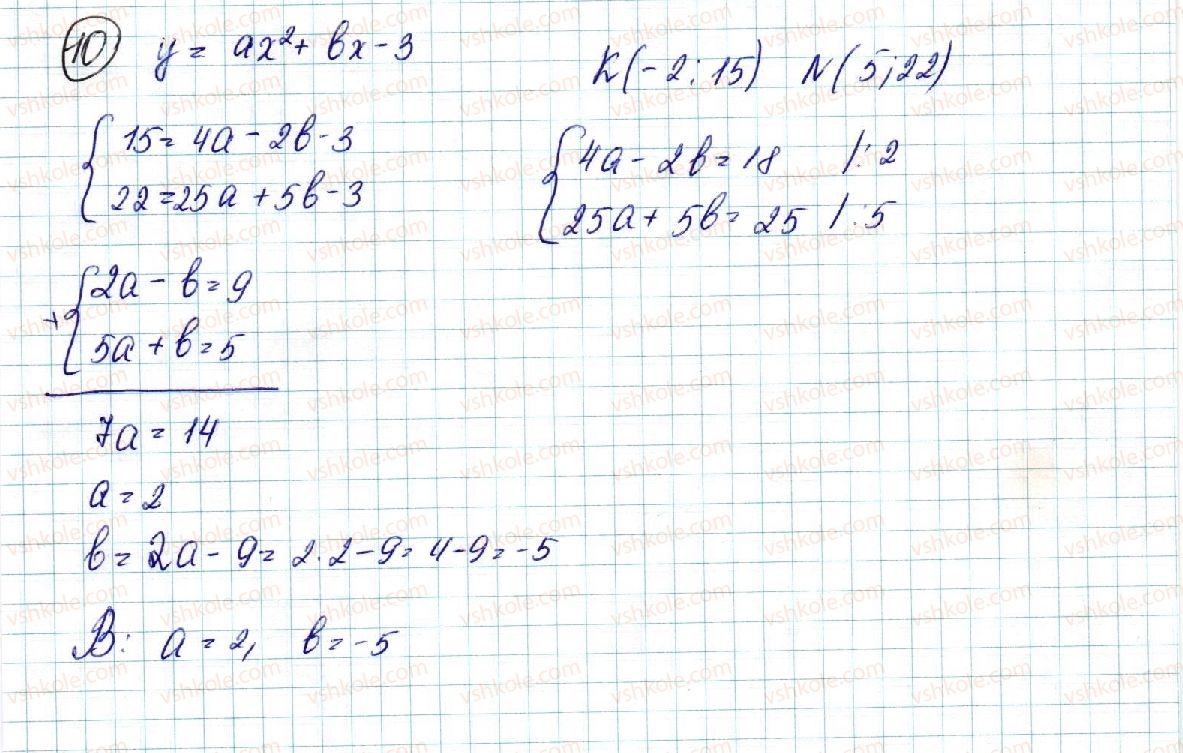 10 y = ax² + bx - 3
K(-2; 15) N(5; 22)
{ 15 = 4a - 2b - 3
22 = 25a + 5b - 3
{ 4a - 2b = 18 |:2
25a + 5b = 25 |:5
+ { 2a - b = 9
5a + b = 5
7a = 14
a = 2
b = 2a - 9 = 2·2 - 9 = 4 - 9 = -5
В: a = 2, b = -5
vshkole.com